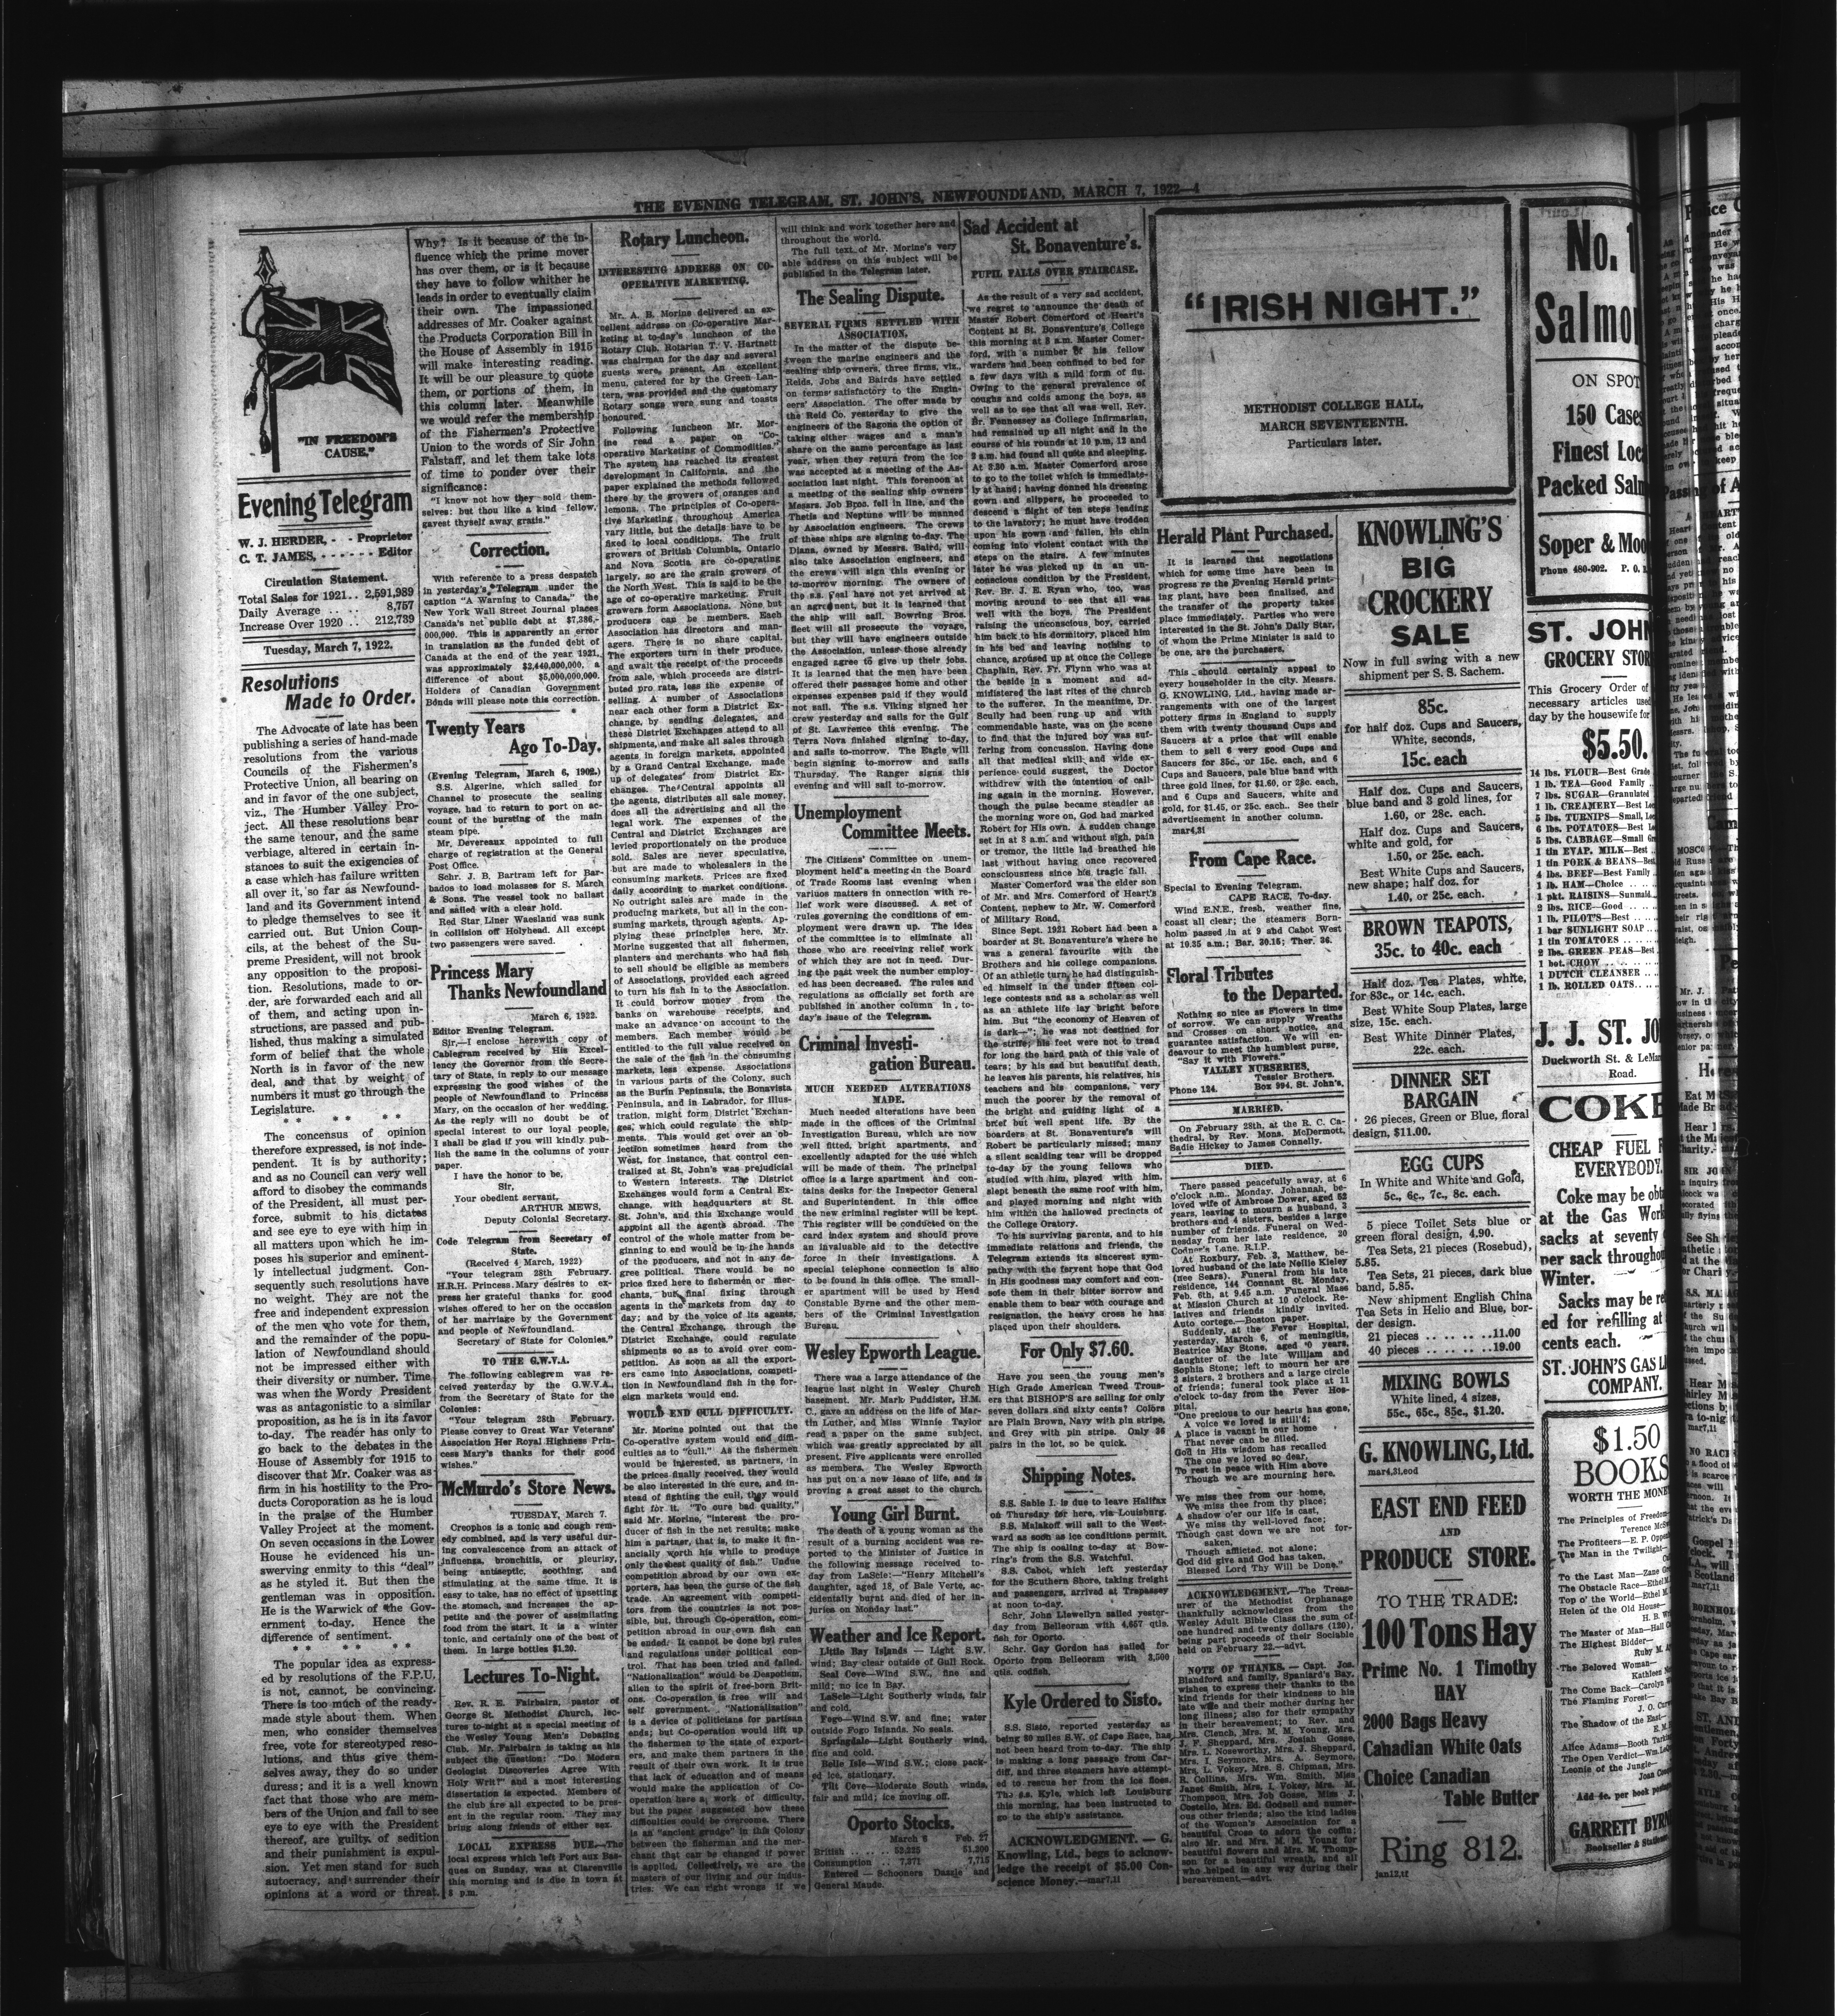 THE EVENING TELEGRAM, ST. JOHN'S, NEWFOUNDLAND, MARCH 7, 1922—4
"IN FREEDOM'S
CAUSE."
Evening Telegram
W. J. HERDER, - - Proprietor
C. T. JAMES, - - - - - - Editor
Circulation Statement.
Total Sales for 1921.. 2,591,989
Daily Average .. .. 8,757
Increase Over 1920 .. 212,739
Tuesday, March 7, 1922.
Resolutions
Made to Order.
The Advocate of late has been
publishing a series of hand-made
resolutions from the various
Councils of the Fishermen's
Protective Union, all bearing on
and in favor of the one subject,
viz., The Humber Valley Pro-
ject. All these resolutions bear
the same tenour, and the same
verbiage, altered in certain in-
stances to suit the exigencies of
a case which has failure written
all over it, so far as Newfound-
land and its Government intend
to pledge themselves to see it
carried out. But Union Coun-
cils, at the behest of the Su-
preme President, will not brook
any opposition to the proposi-
tion. Resolutions, made to or-
der, are forwarded each and all
of them, and acting upon in-
structions, are passed and pub-
lished, thus making a simulated
form of belief that the whole
North is in favor of the new
deal, and that by weight of
numbers it must go through the
Legislature.
* * * *
The concensus of opinion
therefore expressed, is not inde-
pendent. It is by authority;
and as no Council can very well
afford to disobey the commands
of the President, all must per-
force, submit to his dictates
and see eye to eye with him in
all matters upon which he im-
poses his superior and eminent-
ly intellectual judgment. Con-
sequently such resolutions have
no weight. They are not the
free and independent expression
of the men who vote for them,
and the remainder of the popu-
lation of Newfoundland should
not be impressed either with
their diversity or number. Time
was when the Wordy President
was as antagonistic to a similar
proposition, as he is in its favor
to-day. The reader has only to
go back to the debates in the
House of Assembly for 1915 to
discover that Mr. Coaker was as
firm in his hostility to the Pro-
ducts Coroporation as he is loud
in the praise of the Humber
Valley Project at the moment.
On seven occasions in the Lower
House he evidenced his un-
swerving enmity to this "deal"
as he styled it. But then the
gentleman was in opposition.
He is the Warwick of the Gov-
ernment to-day. Hence the
difference of sentiment.
* * * *
The popular idea as express-
ed by resolutions of the F.P.U.
is not, cannot, be convincing.
There is too much of the ready-
made style about them. When
men, who consider themselves
free, vote for stereotyped reso-
lutions, and thus give them-
selves away, they do so under
duress; and it is a well known
fact that those who are mem-
bers of the Union and fail to see
eye to eye with the President
thereof, are guilty of sedition
and their punishment is expul-
sion. Yet men stand for such
autocracy, and surrender their
opinions at a word or threat.
Why? Is it because of the in-
fluence which the prime mover
has over them, or is it because
they have to follow whither he
leads in order to eventually claim
their own. The impassioned
addresses of Mr. Coaker against
the Products Corporation Bill in
the House of Assembly in 1915
will make interesting reading.
It will be our pleasure to quote
them, or portions of them, in
this column later. Meanwhile
we would refer the membership
of the Fishermen's Protective
Union to the words of Sir John
Falstaff, and let them take lots
of time to ponder over their
significance:
"I know not how they sold them-
selves: but thou like a kind fellow,
gavest thyself away gratis."
Correction.
With reference to a press despatch
in yesterday's Telegram under the
caption "A Warning to Canada," the
New York Wall Street Journal places
Canada's net public debt at $7,386,-
000,000. This is apparently an error
in translation as the funded debt of
Canada at the end of the year 1921,
was approximately $2,440,000,000, a
difference of about $5,000,000,000.
Holders of Canadian Government
Bonds will please note this correction.
Twenty Years
Ago To-Day.
(Evening Telegram, March 6, 1902.)
S.S. Algerine, which sailed for
Channel to prosecute the sealing
voyage, had to return to port on ac-
count of the bursting of the main
steam pipe.
Mr. Devereaux appointed to full
charge of registration at the General
Post Office.
Schr. J. B. Bartram left for Bar-
bados to load molasses for S. March
& Sons. The vessel took no ballast
and sailed with a clear hold.
Red Star Liner Waesland was sunk
in collision off Holyhead. All except
two passengers were saved.
Princess Mary
Thanks Newfoundland
March 6, 1922.
Editor Evening Telegram.
Sir,—I enclose herewith copy of
Cablegram received by His Excel-
lency the Governor from the Secre-
tary of State, in reply to our message
expressing the good wishes of the
people of Newfoundland to Princess
Mary, on the occasion of her wedding.
As the reply will no doubt be of
special interest to our loyal people,
I shall be glad if you will kindly pub-
lish the same in the columns of your
paper.
I have the honor to be,
Sir,
Your obedient servant,
ARTHUR MEWS,
Deputy Colonial Secretary.
Code Telegram from Secretary of
State.
(Received 4 March, 1922)
"Your telegram 28th February.
H.R.H. Princess Mary desires to ex-
press her grateful thanks for good
wishes offered to her on the occasion
of her marriage by the Government
and people of Newfoundland.
Secretary of State for Colonies."
TO THE G.W.V.A.
The following cablegram was re-
ceived yesterday by the G.W.V.A.,
from the Secretary of State for the
Colonies:
"Your telegram 28th February.
Please convey to Great War Veterans'
Association Her Royal Highness Prin-
cess Mary's thanks for their good
wishes."
McMurdo's Store News.
TUESDAY, March 7.
Creophos is a tonic and cough rem-
edy combined, and is very useful dur-
ing convalescence from an attack of
influenza, bronchitis, or pleurisy,
being antiseptic, soothing, and
stimulating at the same time. It is
easy to take, has no effect of upsetting
the stomach, and increases the ap-
petite and the power of assimilating
food from the start. It is a winter
tonic, and certainly one of the best of
them. In large bottles $1.20.
Lectures To-Night.
Rev. R. E. Fairbairn, pastor of
George St. Methodist Church, lec-
tures to-night at a special meeting of
the Wesley Young Men's Debating
Club. Mr. Fairbairn is taking as his
subject the question: "Do Modern
Geologist Discoveries Agree With
Holy Writ?" and a most interesting
dissertation is expected. Members of
the club are all expected to be pres-
ent in the regular room. They may
bring along friends of either sex.
LOCAL EXPRESS DUE.—The
local express which left Port aux Bas-
ques on Sunday, was at Clarenville
this morning and is due in town at
8 p.m.
Rotary Luncheon.
INTERESTING ADDRESS ON CO-
OPERATIVE MARKETING.
Mr. A. B. Morine delivered an ex-
cellent address on Co-operative Mar-
keting at to-day's luncheon of the
Rotary Club. Rotarian T. V. Hartnett
was chairman for the day and several
guests were present. An excellent
menu, catered for by the Green Lan-
tern, was provided and the customary
Rotary songs were sung and toasts
honoured.
Following luncheon Mr. Mor-
ine read a paper on "Co-
operative Marketing of Commodities."
The system has reached its greatest
development in California, and the
paper explained the methods followed
there by the growers of oranges and
lemons. The principles of Co-opera-
tive Marketing throughout America
vary little, but the details have to be
fixed to local conditions. The fruit
growers of British Columbia, Ontario
and Nova Scotia are co-operating
largely, so are the grain growers of
the North West. This is said to be the
age of co-operative marketing. Fruit
growers form Associations. None but
producers can be members. Each
Association has directors and man-
agers. There is no share capital.
The exporters turn in their produce,
and await the receipt of the proceeds
from sale, which proceeds are distri-
buted pro rata, less the expense of
selling. A number of Associations
near each other form a District Ex-
change, by sending delegates, and
these District Exchanges attend to all
shipments, and make all sales through
agents in foreign markets, appointed
by a Grand Central Exchange, made
up of delegates from District Ex-
changes. The Central appoints all
the agents, distributes all sale money,
does all the advertising and all the
legal work. The expenses of the
Central and District Exchanges are
levied proportionately on the produce
sold. Sales are never speculative,
but are made to wholesalers in the
consuming markets. Prices are fixed
daily according to market conditions.
No outright sales are made in the
producing markets, but all in the con-
suming markets, through agents. Ap-
plying these principles here, Mr.
Morine suggested that all fishermen,
planters and merchants who had fish
to sell should be eligible as members
of Associations, provided each agreed
to turn his fish in to the Association.
It could borrow money from the
banks on warehouse receipts, and
make an advance on account to the
members. Each member would be
entitled to the full value received on
the sale of the fish in the consuming
markets, less expense. Associations
in various parts of the Colony, such
as the Burin Peninsula, the Bonavista
Peninsula, and in Labrador, for illus-
tration, might form District Exchan-
ges, which could regulate the ship-
ments. This would get over an ob-
jection sometimes heard from the
West, for instance, that control cen-
tralized at St. John's was prejudicial
to Western interests. The District
Exchanges would form a Central Ex-
change, with headquarters at St.
St. John's, and this Exchange would
appoint all the agents abroad. The
control of the whole matter from be-
ginning to end would be in the hands
of the producers, and not in any de-
gree political. There would be no
price fixed here to fishermen or mer-
chants, but final fixing through
agents in the markets from day to
day; and by the voice of its agents,
the Central Exchange, through the
District Exchange, could regulate
shipments so as to avoid over com-
petition. As soon as all the export-
ers came into Associations, competi-
tion in Newfoundland fish in the for-
eign markets would end.
WOULD END CULL DIFFICULTY.
Mr. Morine pointed out that the
Co-operative system would end diffi-
culties as to "cull." As the fishermen
would be interested, as partners, in
the prices finally received, they would
be also interested in the cure, and in-
stead of fighting the cull, they would
fight for it. "To cure bad quality,"
said Mr. Morine, "interest the pro-
ducer of fish in the net results; make
him a partner, that is, to make it fin-
ancially worth his while to produce
only the best quality of fish." Undue
competition abroad by our own ex-
porters, has been the curse of the fish
trade. An agreement with competi-
tors from the countries is not pos-
sible, but, through Co-operation, com-
petition abroad in our own fish can
be ended. It cannot be done by rules
and regulations under political con-
trol. That has been tried and failed.
"Nationalization" would be Despotism,
alien to the spirit of free-born Brit-
ons. Co-operation is free will and
self government. "Nationalization"
is a device of politicians for partisan
ends; but Co-operation would lift up
the fishermen to the state of export-
ers, and make them partners in the
result of their own work. It is true
that lack of education and of means
would make the application of Co-
operation here a work of difficulty,
but the paper suggested how these
difficulties could be overcome. There
is an "ancient grudge" in this Colony
between the fisherman and the mer-
chant that can be changed if power
is applied. Collectively, we are the
masters of our living and our indus-
tries. We can right wrongs if we
will think and work together here and
throughout the world.
The full text of Mr. Morine's very
able address on this subject will be
published in the Telegram later.
The Sealing Dispute.
SEVERAL FIRMS SETTLED WITH
ASSOCIATION.
In the matter of the dispute be-
tween the marine engineers and the
sealing ship owners, three firms, viz.,
Reids, Jobs and Bairds have settled
on terms satisfactory to the Engin-
eers' Association. The offer made by
the Reid Co. yesterday to give the
engineers of the Sagona the option of
taking either wages and a man's
share on the same percentage as last
year, when they return from the ice
was accepted at a meeting of the As-
sociation last night. This forenoon at
a meeting of the sealing ship owners
Messrs. Job Bros. fell in line, and the
Thetis and Neptune will be manned
by Association engineers. The crews
of these ships are signing to-day. The
Diana, owned by Messrs. Baird, will
also take Association engineers, and
the crews will sign this evening or
to-morrow morning. The owners of
the s.s. Seal have not yet arrived at
an agreement, but it is learned that
the ship will sail. Bowring Bros.
fleet will all prosecute the voyage,
but they will have engineers outside
the Association, unless those already
engaged agree to give up their jobs.
It is learned that the men have been
offered their passages home and other
expenses expenses paid if they would
not sail. The s.s. Viking signed her
crew yesterday and sails for the Gulf
of St. Lawrence this evening. The
Terra Nova finished signing to-day,
and sails to-morrow. The Eagle will
begin signing to-morrow and sails
Thursday. The Ranger signs this
evening and will sail to-morrow.
Unemployment
Committee Meets.
The Citizens' Committee on unem-
ployment held a meeting in the Board
of Trade Rooms last evening when
various matters in connection with re-
lief work were discussed. A set of
rules governing the conditions of em-
ployment were drawn up. The idea
of the committee is to eliminate all
those who are receiving relief work
of which they are not in need. Dur-
ing the past week the number employ-
ed has been decreased. The rules and
regulations as officially set forth are
published in another column in to-
day's issue of the Telegram.
Criminal Investi-
gation Bureau.
MUCH NEEDED ALTERATIONS
MADE.
Much needed alterations have been
made in the offices of the Criminal
Investigation Bureau, which are now
well fitted, bright apartments, and
excellently adapted for the use which
will be made of them. The principal
office is a large apartment and con-
tains desks for the Inspector General
and Superintendent. In this office
the new criminal register will be kept.
This register will be conducted on the
card index system and should prove
an invaluable aid to the detective
force in their investigations. A
special telephone connection is also
to be found in this office. The small-
er apartment will be used by Head
Constable Byrne and the other mem-
bers of the Criminal Investigation
Bureau.
Wesley Epworth League.
There was a large attendance of the
league last night in Wesley Church
basement. Mr. Mark Puddister, H.M.
C., gave an address on the life of Mar-
tin Luther, and Miss Winnie Taylor
read a paper on the same subject,
which was greatly appreciated by all
present. Five applicants were enrolled
as members. The Wesley Epworth
has put on a new lease of life, and is
proving a great asset to the church.
Young Girl Burnt.
The death of a young woman as the
result of a burning accident was re-
ported to the Minister of Justice in
the following message received to-
day from LaScie:—"Henry Mitchell's
daughter, aged 18, of Baie Verte, ac-
cidentally burnt and died of her in-
juries on Monday last."
Weather and Ice Report.
Little Bay Islands — Light S.W.
wind; Bay clear outside of Gull Rock.
Seal Cove—Wind S.W., fine and
mild; no ice in Bay.
LaScie—Light Southerly winds, fair
and cold.
Fogo—Wind S.W. and fine; water
outside Fogo Islands. No seals.
Springdale—Light Southerly wind,
fine and cold.
Belle Isle—Wind S.W.; close pack-
ed ice, stationary.
Tilt Cove—Moderate South winds,
fair and mild; ice moving off.
Oporto Stocks.
March 6 Feb. 27
British .. .. .. 53,225 51,200
Consumption .. 7,371 7,715
Entered — Schooners Dazzle and
General Maude.
Sad Accident at
St. Bonaventure's.
PUPIL FALLS OVER STAIRCASE.
As the result of a very sad accident,
we regret to announce the death of
Master Robert Comerford of Heart's
Content at St. Bonaventure's College
this morning at 8 a.m. Master Comer-
ford, with a number of his fellow
warders had been confined to bed for
a few days with a mild form of flu.
Owing to the general prevalence of
coughs and colds among the boys, as
well as to see that all was well, Rev.
Br. Fennessey as College Infirmarian,
had remained up all night and in the
course of his rounds at 10 p.m, 12 and
2 a.m. had found all quite and sleeping.
At 3.30 a.m. Master Comerford arose
to go to the toilet which is immediate-
ly at hand; having donned his dressing
gown and slippers, he proceeded to
descend a flight of ten steps leading
to the lavatory; he must have trodden
upon his gown and fallen, his chin
coming into violent contact with the
steps on the stairs. A few minutes
later he was picked up in an un-
conscious condition by the President,
Rev. Br. J. E. Ryan who, too, was
moving around to see that all was
well with the boys. The President
raising the unconscious boy, carried
him back to his dormitory, placed him
in his bed and leaving nothing to
chance, aroused up at once the College
Chaplain, Rev. Fr. Flynn who was at
the beside in a moment and ad-
midistered the last rites of the church
to the sufferer. In the meantime, Dr.
Scully had been rung up and with
commendable haste, was on the scene
to find that the injured boy was suf-
fering from concussion. Having done
all that medical skill and wide ex-
perience could suggest, the Doctor
withdrew with the intention of call-
ing again in the morning. However,
though the pulse became steadier as
the morning wore on, God had marked
Robert for His own. A sudden change
set in at 8 a.m. and without sigh, pain
or tremor, the little lad breathed his
last without having once recovered
consciousness since his tragic fall.
Master Comerford was the elder son
of Mr. and Mrs. Comerford of Heart's
Content, nephew to Mr. W. Comerford
of Military Road.
Since Sept. 1921 Robert had been a
boarder at St. Bonaventure's where he
was a general favourite with the
Brothers and his college companions.
Of an athletic turn he had distinguish-
ed himself in the under fifteen col-
lege contests and as a scholar as well
as an athlete life lay bright before
him. But "the economy of Heaven of
is dark—"; he was not destined for
the strife; his feet were not to tread
for long the hard path of this vale of
tears; by his sad but beautiful death,
he leaves his parents, his relatives, his
teachers and his companions, very
much the poorer by the removal of
the bright and guiding light of a
brief but well spent life. By the
boarders at St. Bonaventure's will
Robert be particularly missed; many
a silent scalding tear will be dropped
to-day by the young fellows who
studied with him, played with him,
slept beneath the same roof with him,
and played morning and night with
him within the hallowed precincts of
the College Oratory.
To his surviving parents, and to his
immediate relations and friends, the
Telegram extends its sincerest sym-
pathy with the fervent hope that God
in His goodness may comfort and con-
sole them in their bitter sorrow and
enable them to bear with courage and
resignation, the heavy cross he has
placed upon their shoulders.
For Only $7.60.
Have you seen the young men's
High Grade American Tweed Trous-
ers that BISHOP'S are selling for only
seven dollars and sixty cents? Colors
are Plain Brown, Navy with pin stripe,
and Grey with pin stripe. Only 36
pairs in the lot, so be quick.
Shipping Notes.
S.S. Sable I. is due to leave Halifax
on Thursday for here, via Louisburg.
S.S. Malakoff will sail to the West-
ward as soon as ice conditions permit.
The ship is coaling to-day at Bow-
ring's from the S.S. Watchful.
S.S. Cabot, which left yesterday
for the Scuthern Shore, taking freight
and passengers, arrived at Trepassey
at noon to-day.
Schr. John Llewellyn sailed yester-
day from Belleoram with 4,657 qtls.
fish for Oporto.
Schr. Gay Gordon has sailed for
Oporto from Belleoram with 3,500
qtls. codfish.
Kyle Ordered to Sisto.
S.S. Sisto, reported yesterday as
being 80 miles S.W. of Cape Race, has
not been heard from to-day. The ship
is making a long passage from Car-
diff, and three steamers have attempt-
ed to rescue her from the ice floes.
The s.s. Kyle, which left Louisburg
this morning, has been instructed to
go to the ship's assistance.
ACKNOWLEDGMENT. — G.
Knowling, Ltd., begs to acknow-
ledge the receipt of $5.00 Con-
science Money.—mar7,1i
"IRISH NIGHT."
METHODIST COLLEGE HALL,
MARCH SEVENTEENTH.
Particulars later.
Herald Plant Purchased.
It is learned that negotiations
which for some time have been in
progress re the Evening Herald print-
ing plant, have been finalized, and
the transfer of the property takes
place immediately. Parties who were
interested in the St. John's Daily Star,
of whom the Prime Minister is said to
be one, are the purchasers.
This should certainly appeal to
every householder in the city. Messrs.
G. KNOWLING, Ltd., having made ar-
rangements with one of the largest
pottery firms in England to supply
them with twenty thousand Cups and
Saucers at a price that will enable
them to sell 6 very good Cups and
Saucers for 85c., or 15c. each, and 6
Cups and Saucers, pale blue band with
three gold lines, for $1.60, or 28c. each,
and 6 Cups and Saucers, white and
gold, for $1.45, or 25c. each. See their
advertisement in another column.
mar4,3i
From Cape Race.
Special to Evening Telegram.
CAPE RACE, To-day.
Wind E.N.E., fresh, weather fine,
coast all clear; the steamers Born-
holm passed in at 9 and Cabot West
at 10.35 a.m.; Bar. 30.15; Ther. 36.
Floral Tributes
to the Departed.
Nothing so nice as Flowers in time
of sorrow. We can supply Wreaths
and Crosses on short notice, and
guarantee satisfaction. We will en-
deavour to meet the humblest purse,
"Say it with Flowers."
VALLEY NURSERIES,
Tessier Brothers.
Phone 124. Box 994, St. John's.
MARRIED.
On February 28th, at the R. C. Ca-
thedral, by Rev. Mons. McDermott,
Sadie Hickey to James Connelly.
DIED.
There passed peacefully away, at 6
o'clock a.m., Monday, Johannah, be-
loved wife of Ambrose Dower, aged 52
years, leaving to mourn a husband, 3
brothers and 4 sisters, besides a large
number of friends. Funeral on Wed-
nesday from her late residence, 20
Codner's Lane. R.I.P.
At Roxbury, Feb. 3, Matthew, be-
loved husband of the late Nellie Kieley
(nee Sears). Funeral from his late
residence, 144 Connant St. Monday,
Feb. 6th, at 9.45 a.m. Funeral Mass
at Mission Church at 10 o'clock. Re-
latives and friends kindly invited.
Auto cortege.—Boston paper.
Suddenly, at the Fever Hospital,
yesterday, March 6, of meningitis,
Beatrice May Stone, aged years,
daughter of the late William and
Sophia Stone; left to mourn her are
2 sisters, 2 brothers and a large circle
of friends; funeral took place at 11
o'clock to-day from the Fever Hos-
pital.
"One precious to our hearts has gone,
A voice we loved is still'd;
A place is vacant in our home
That never can be filled.
God in His wisdom has recalled
The one we loved so dear,
To rest in peace with Him above
Though we are mourning here.
We miss thee from our home,
We miss thee from thy place;
A shadow o'er our life is cast.
We miss thy well-loved face;
Though cast down we are not for-
saken,
Though afflicted, not alone;
God did give and God has taken,
Blessed Lord Thy Will be Done."
ACKNOWLEDGMENT.—The Treas-
urer of the Methodist Orphanage
thankfully acknowledges from the
Wesley Adult Bible Class the sum of
one hundred and twenty dollars (120),
being part proceeds of their Sociable
held on February 22.—advt.
NOTE OF THANKS. — Capt. Jos.
Blandford and family, Spaniard's Bay,
wishes to express their thanks to the
kind friends for their kindness to his
late wife and their mother during her
long illness; also for their sympathy
in their bereavement; to Rev. and
Mrs. Clench, Mrs. M. M. Young, Mrs.
J. F. Sheppard, Mrs. Josiah Gosse,
Mrs. L. Noseworthy, Mrs. J. Sheppard,
Mrs. I. Seymore, Mrs. A. Seymore,
Mrs. L. Vokey, Mrs. S. Chipman, Mrs.
R. Collins, Mrs. Wm. Smith, Miss
Janet Smith, Mrs. I. Vokey, Mrs. M.
Thompson, Mrs. Job Gosse, Miss J.
Costello, Mrs. Ed. Godsell and numer-
ous other friends; also the kind ladies
of the Women's Association for a
beautiful Cross to adorn the coffin;
also Mr. and Mrs. M. M. Young for
beautiful flowers and Mrs. M. Thomp-
son for a beautiful wreath, and all
who helped in any way during their
bereavement.—advt.
KNOWLING'S
BIG
CROCKERY
SALE
Now in full swing with a new
shipment per S. S. Sachem.
85c.
for half doz. Cups and Saucers,
White, seconds,
15c. each
Half doz. Cups and Saucers,
blue band and 3 gold lines, for
1.60, or 28c. each.
Half doz. Cups and Saucers,
white and gold, for
1.50, or 25c. each.
Best White Cups and Saucers,
new shape; half doz. for
1.40, or 25c. each.
BROWN TEAPOTS,
35c. to 40c. each
Half doz. Tea Plates, white,
for 83c., or 14c. each.
Best White Soup Plates, large
size, 15c. each.
Best White Dinner Plates,
22c. each.
DINNER SET
BARGAIN
26 pieces, Green or Blue, floral
design, $11.00.
EGG CUPS
In White and White and Gold,
5c., 6c., 7c., 8c. each.
5 piece Toilet Sets blue or
green floral design, 4.90.
Tea Sets, 21 pieces (Rosebud),
5.85.
Tea Sets, 21 pieces, dark blue
band, 5.85.
New shipment English China
Tea Sets in Helio and Blue, bor-
der design.
21 pieces .. .. .. ..11.00
40 pieces .. .. .. ..19.00
MIXING BOWLS
White lined, 4 sizes,
55c., 65c., 85c., $1.20.
G. KNOWLING, Ltd.
mar4,3i,eod
EAST END FEED
AND
PRODUCE STORE.
TO THE TRADE:
100 Tons Hay
Prime No. 1 Timothy
HAY
2000 Bags Heavy
Canadian White Oats
Choice Canadian
Table Butter
Ring 812.
jan12,tf
No. 1
Salmo
ON SPOT
150 Cases
Finest Loc
Packed Salm
Soper & Moo
Phone 480-902. P. O.
ST. JOHN
GROCERY STOR
This Grocery Order of
necessary articles used
day by the housewife for
$5.50.
14 lbs. FLOUR—Best Grade
1 lb. TEA—Good Family ..
2 lbs. SUGAR—Granulated
1 lb. CREAMERY—Best
5 lbs. TURNIPS—Small,
6 lbs. POTATOES—Best
5 lbs. CABBAGE—Small
1 tin EVAP. MILK—Best ..
1 tin PORK & BEANS—Best
4 lbs. BEEF—Best Family
1 lb. HAM—Choice .. ..
1 pkt. RAISINS—Sunmaid
2 lbs. RICE—Good .. ..
1 lb. PILOT'S—Best .. ..
1 bar SUNLIGHT SOAP ..
1 tin TOMATOES .. ..
2 lbs. GREEN PEAS—Best
1 bot. CHOW .. ..
1 DUTCH CLEANSER ..
1 lb. ROLLED OATS.. ..
J. J. ST. JO
Duckworth St. & LeMar
Road.
COKE
CHEAP FUEL F
EVERYBODY.
Coke may be obt
at the Gas Work
sacks at seventy
per sack throughou
Winter.
Sacks may be re
ed for refilling at
cents each.
ST. JOHN'S GAS LI
COMPANY.
$1.50
BOOKS
WORTH THE MONEY
The Principles of Freedom—
Terence
The Profiteers—E. P. Oppenh
The Man in the Twilight—
To the Last Man—Zane
The Obstacle Race—Ethel
Top o' the World—Ethel M.
Helen of the Old House—
H. B.
The Master of Man—Hall
The Highest Bidder—
Ruby M.
The Beloved Woman—
Kathleen
The Come Back—Carolyn
The Flaming Forest—
J. O.
The Shadow of the East—
E. M.
Alice Adams—Booth
The Open Verdict—Wm.
Leonie of the Jungle—
Joan
Add 4c. per book postage
GARRETT BYRN
Bookseller & Stationer